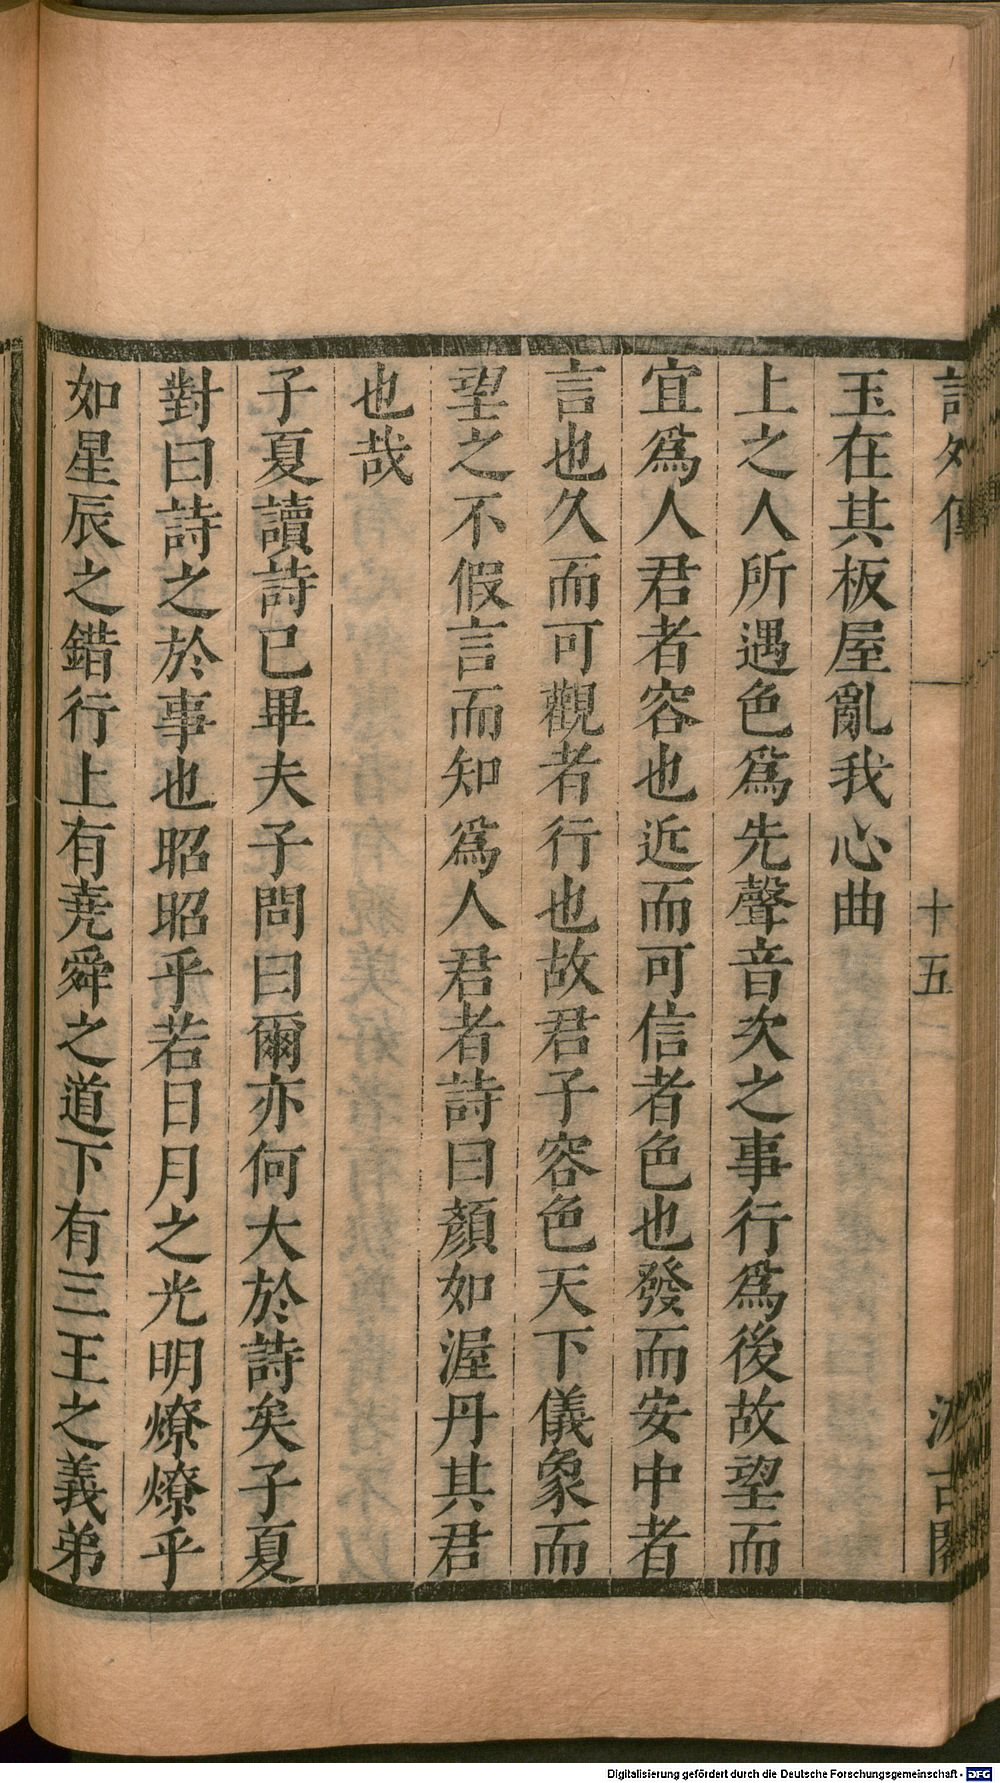 詩外傳 十五 汲古閣
玉在其板屋亂我心曲
上之人所遇色爲先聲音次之事行爲後故望而
宜爲人君者容也近而可信者色也發而安中者
言也久而可觀者行也故君子容色天下儀象而
望之不假言而知爲人君者詩曰顏如渥丹其君
也哉
子夏讀詩已畢夫子問曰爾亦何大於詩矣子夏
對曰詩之於事也昭昭乎若日月之光明燎燎乎
如星辰之錯行上有堯舜之道下有三王之義弟
Digitalisierung gefördert durch die Deutsche Forschungsgemeinschaft - DFG